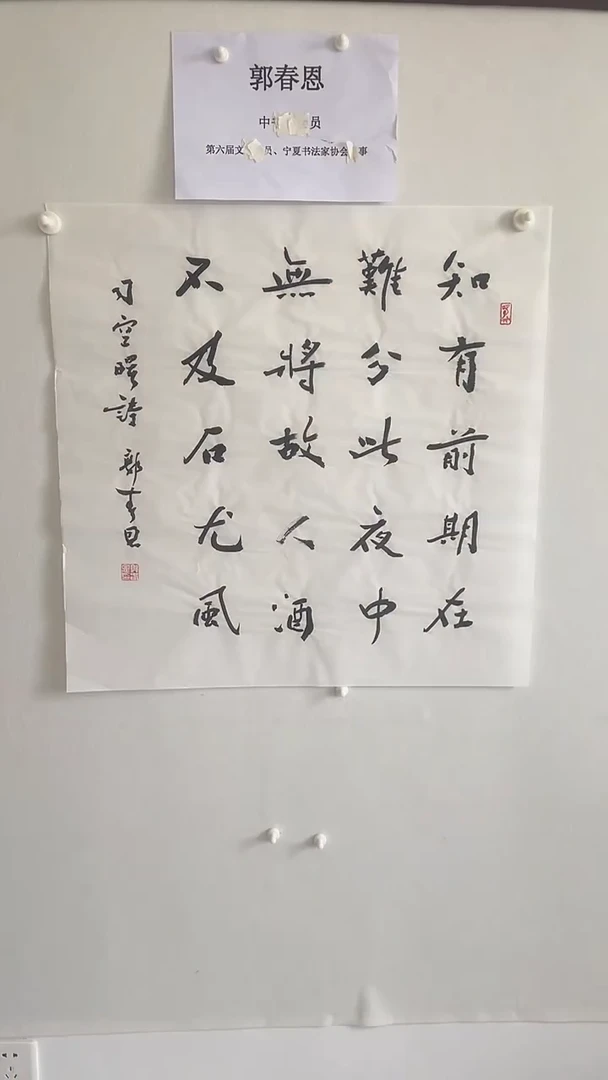 郭春恩
中 员
第六届文 员、宁夏书法家协会 事
知有前期在
難分此夜中
無將故人酒
不及石尤風
司空曙詩 郭春恩